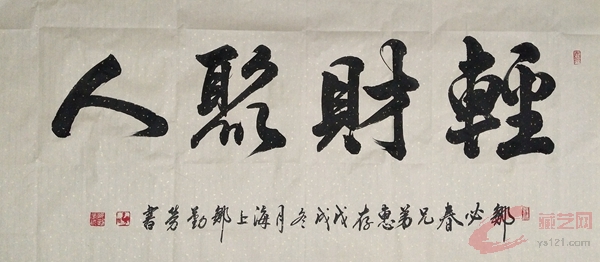 輕財聚人
鄒必春兄弟惠存戊戌冬月海上鄒勤勞書
藏艺网
ys121.com